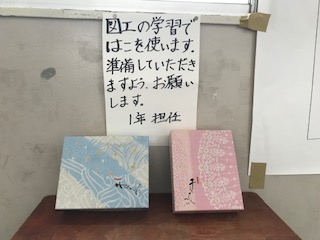 図工の学習で
はこを使います。
準備していただき
ますよう、お願い
します。
1年 担任